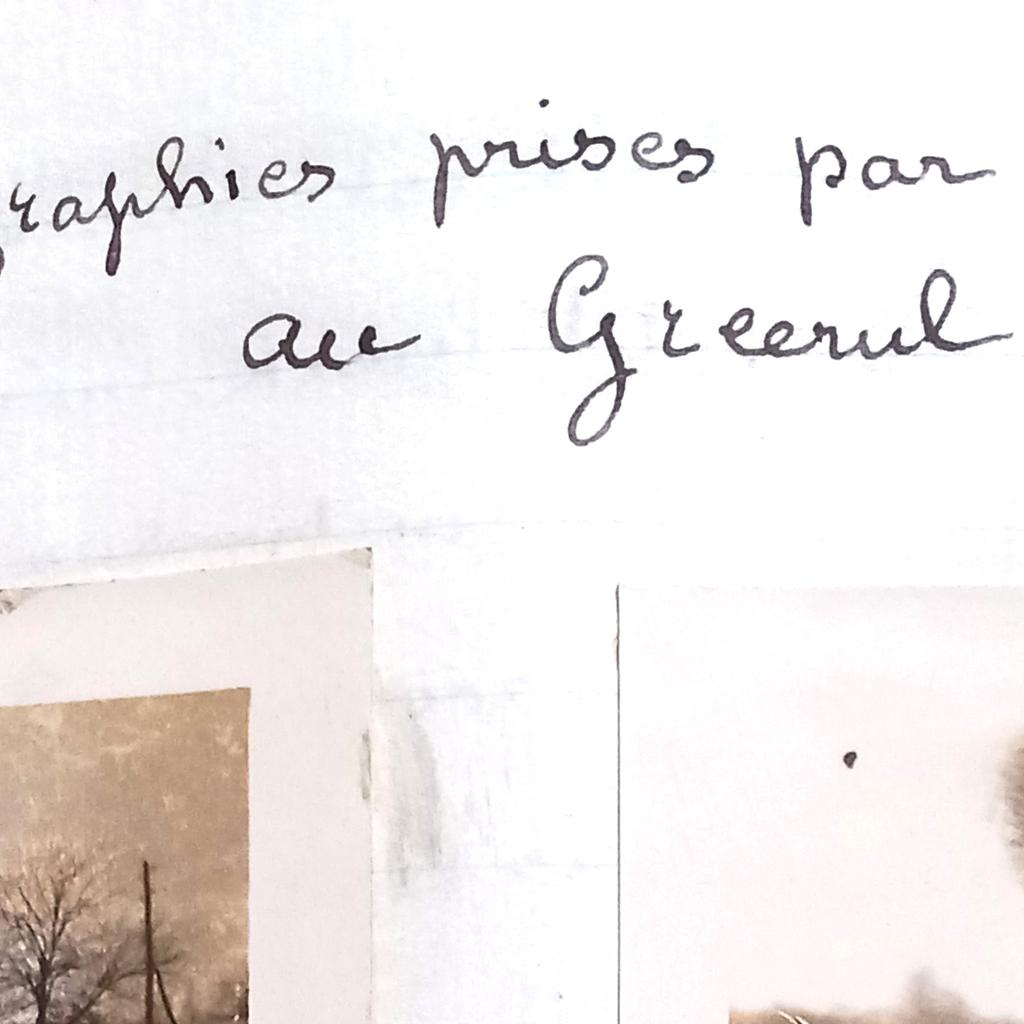 raphies prises par
au Greerul